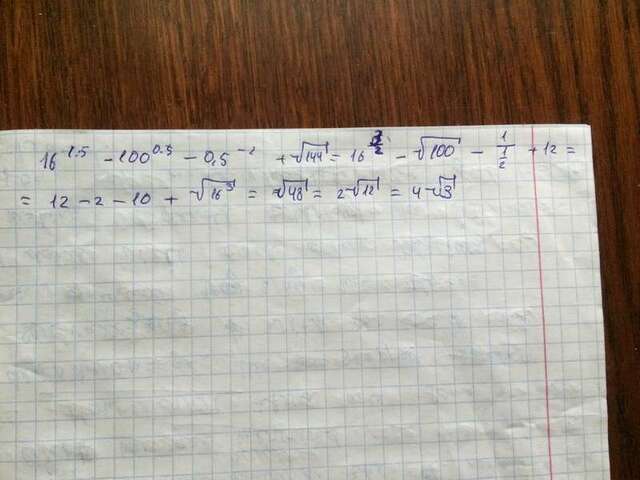 16^{1.5} - 100^{0.5} - 0,5^{-1} + √144 = 16^{3/2} - √100 - 1/(1/2) + 12 =
= 12 - 2 - 10 + √16^3 = √48 = 2√12 = 4√3